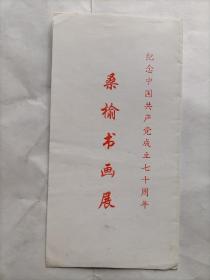 纪念中国共产党成立七十周年
桑榆书画展